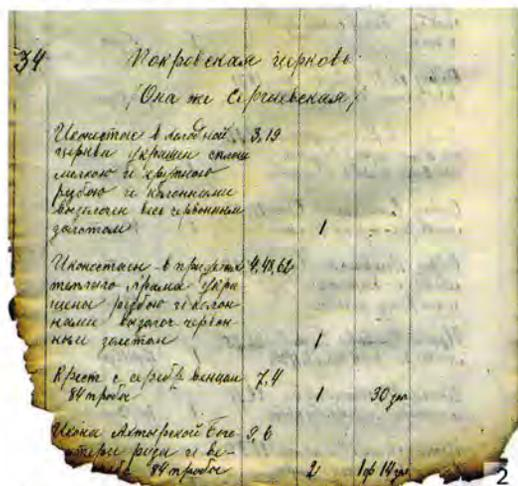 34 Покровская церковь
(Она же Сергиевская)
Иконостас в холодной 3,19
церкви украшен сплош
мелкою и крупною
рѣзьбою и колоннами
вызолочен весь червонным
золотом 1
Иконостасы в приделах 4.48,62
теплого храма укра
шены резбою и колон
нами вызолоч червон
ным золотом 1
Крест с сереб. венцом 7,4
84 пробы 1 30 зол
Икона Ахтырской Бого 9,6
матери риза и ве-
84 пробы 2 1 ф 14 зол
2